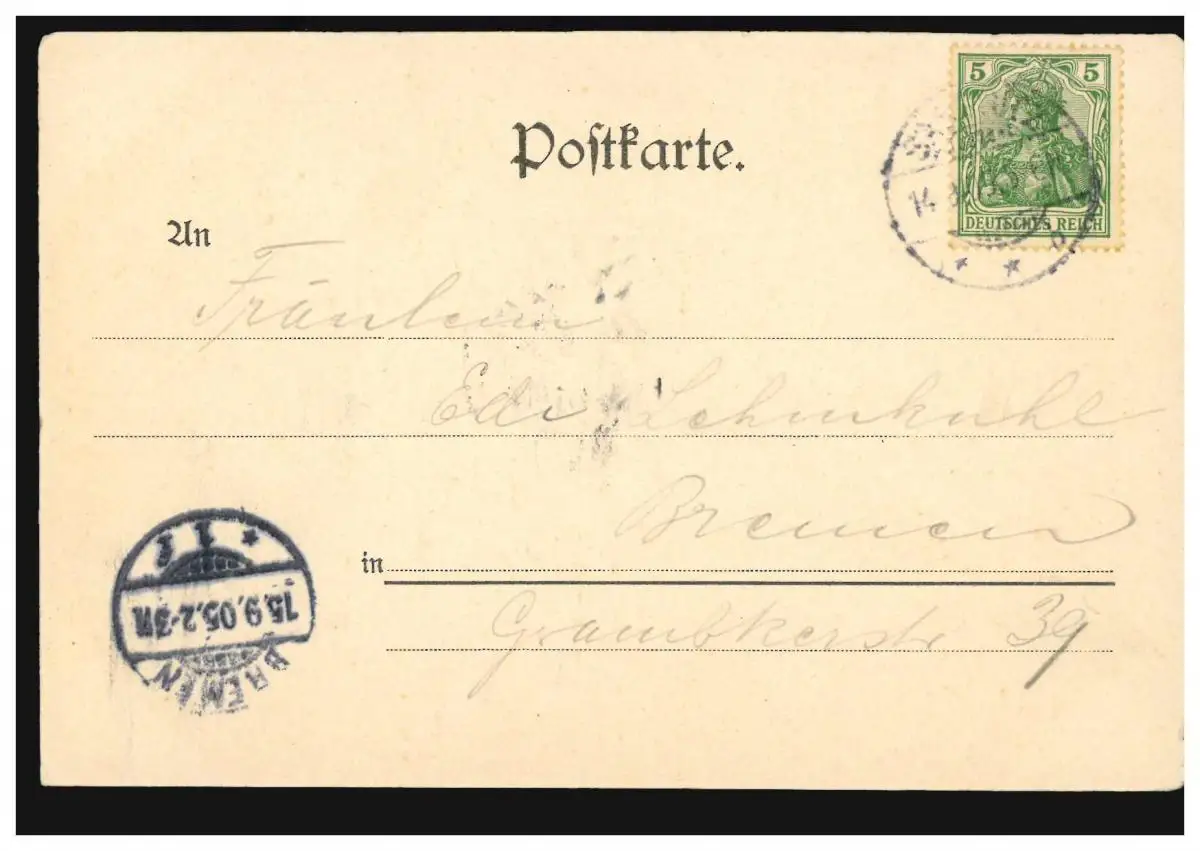 5 5
DEUTSCHES REICH
Postkarte.
An
Fräulein
Edi Lehmkuhl
Bremen
in
Grambkerstr 39
BREMEN
15.9.05.2-3N
* 1 f
14
* * b